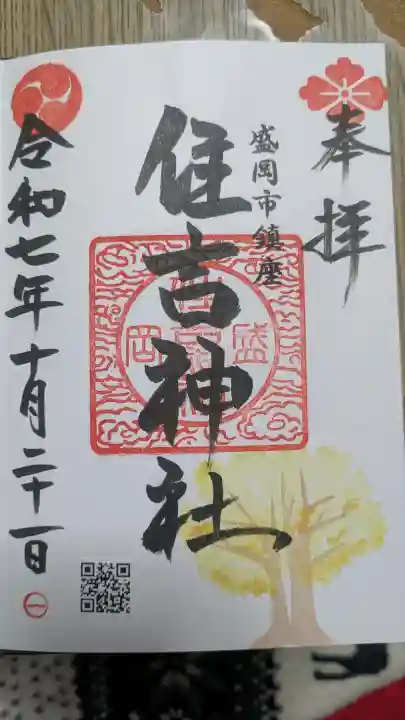 奉拝
盛岡市鎮座
住吉神社
令和七年十月二十一日
㊀
盛
岡